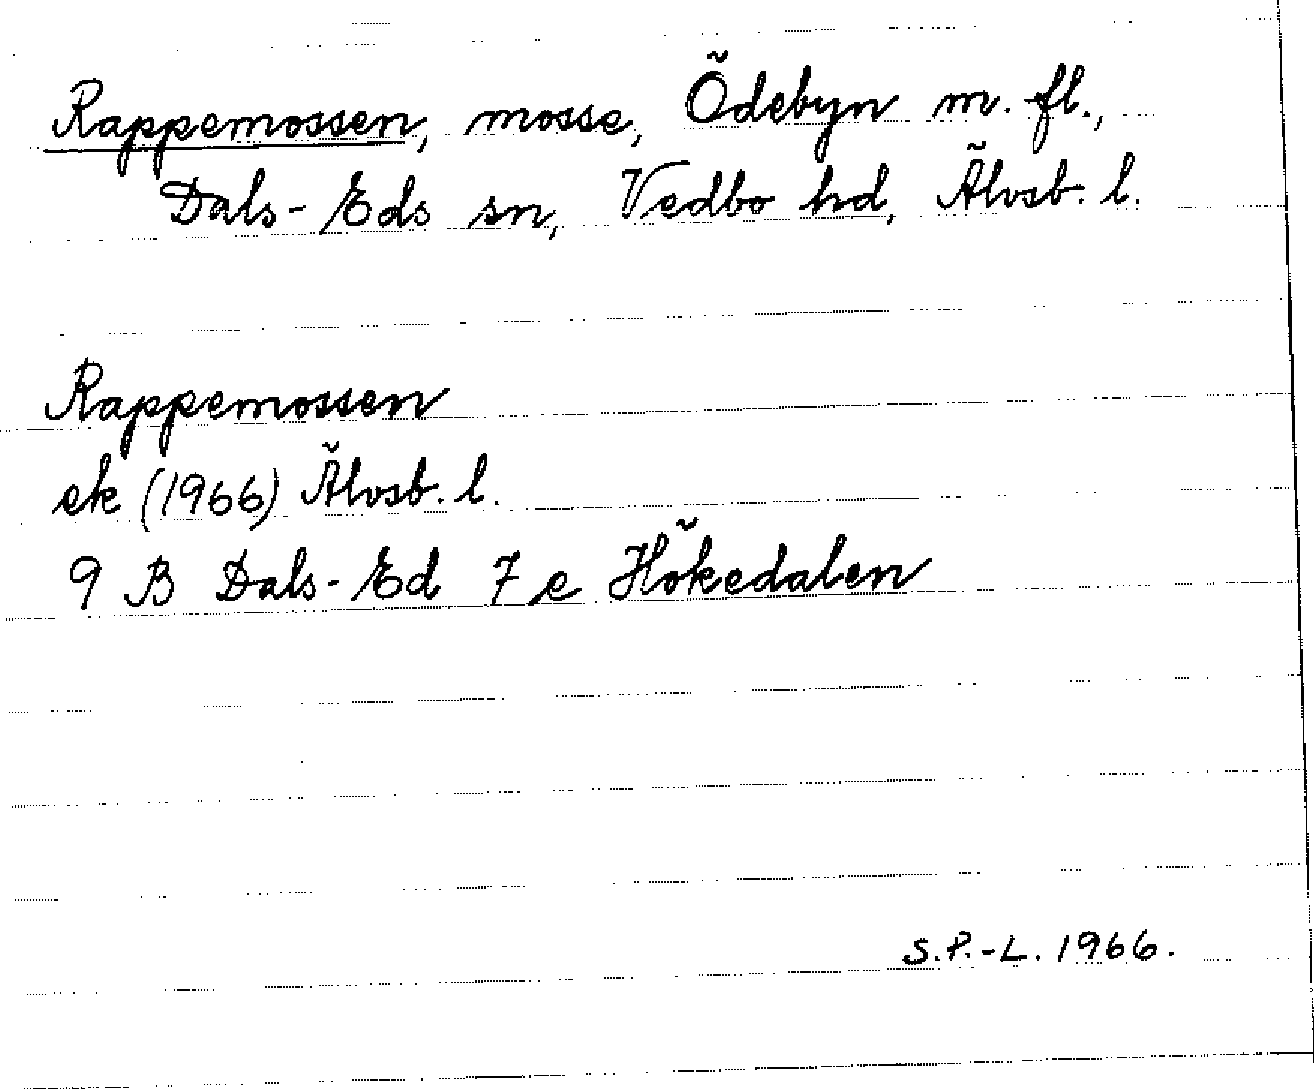 Rappemossen, mosse, Ödebyn m. fl.,
Dals-Eds sn, Vedbo hd, Älvsb. l.
Rappemossen
ek (1966) Älvsb. l.
9 B Dals-Ed 7 e Hökedalen
S.P.-L. 1966.